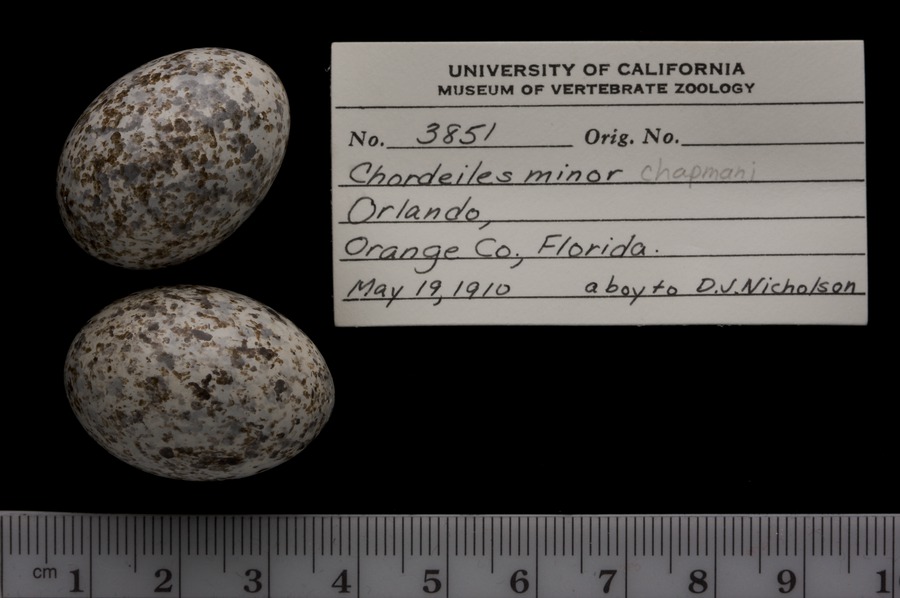 UNIVERSITY OF CALIFORNIA
MUSEUM OF VERTEBRATE ZOOLOGY
No. 3851 Orig. No.
Chordeiles minor chapmani
Orlando,
Orange Co., Florida.
May 19, 1910 a boy to D.J. Nicholson
cm 1 2 3 4 5 6 7 8 9 1